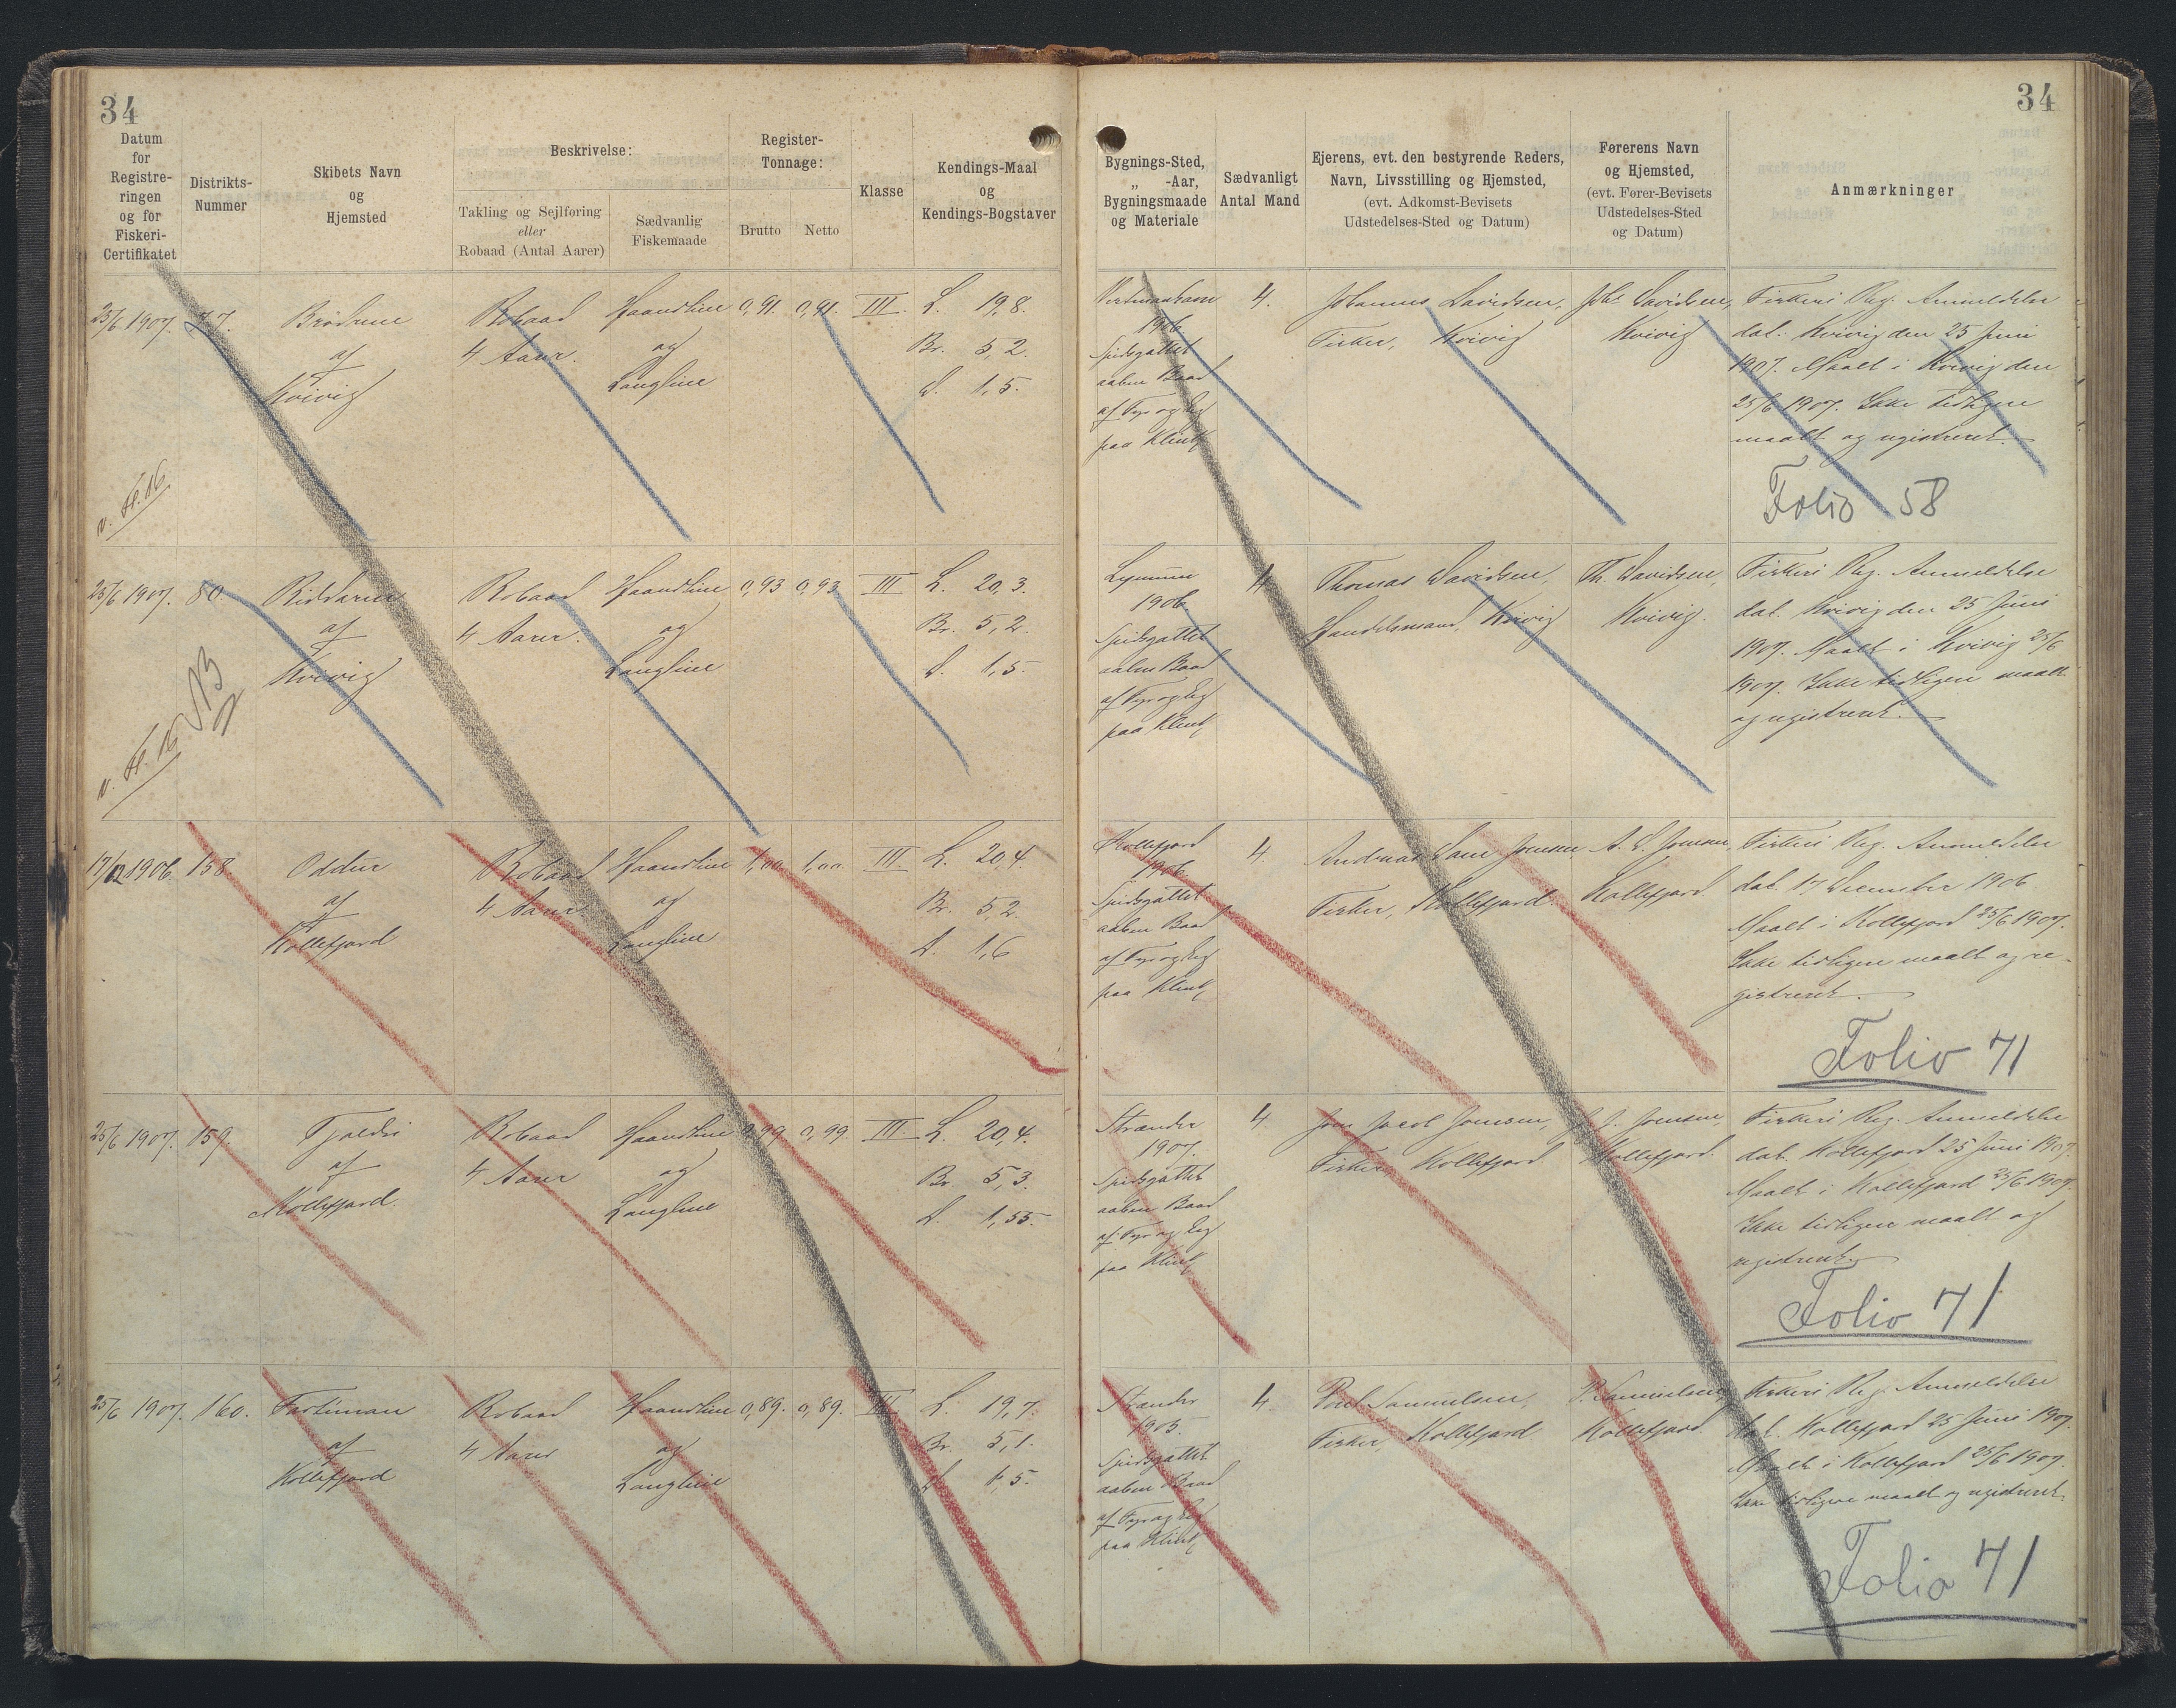 34
Datum
for
Registre-
ringen
og for
Fiskeri-
Certifikatet
Distrikts-
Nummer
Skibets Navn
og
Hjemsted
Beskrivelse:
Takling og Sejlføring
eller
Robaad (Antal Aarer)
Sædvanlig
Fiskemaade
Register-
Tonnage:
Brutto
Netto
Klasse
Kendings-Maal
og
Kendings-Bogstaver
25/6 1907. 77. Brødrene Robaad Haandline 0,91. 0,91. III. L. 19,8.
af 4 Aarer. og Br. 5,2.
Kvivig Langline D. 1,5.
25/6 1907. 80. Riddaren Robaad Haandline 0,93 0,93 III L. 20,3.
af 4 Aarer. og Br. 5,2.
Kvivig Langline D. 1,5
17/12 1906. 158. Oddur Robaad Haandline 1,00 1,00 III L. 20,4
af 4 Aarer og Br. 5,2.
Kollefjord Langline D. 1,6
25/6 1907. 159. Tjaldri Robaad Haandline 0,99 0,99. III L. 20,4.
af 4 Aarer og Br. 5,3.
Kollefjord Langline D. 1,55.
25/6 1907. 160. Robaad Haandline 0,89. 0,89. III L. 19,7.
af 4 Aarer og Br. 5,1.
Kollefjord Langline D. 1,5.
34
Bygnings-Sted,
„ -Aar,
Bygningsmaade
og Materiale
Sædvanligt
Antal Mand
Ejerens, evt. den bestyrende Reders,
Navn, Livsstilling og Hjemsted,
(evt. Adkomst-Bevisets
Udstedelses-Sted og Datum)
Førerens Navn
og Hjemsted,
(evt. Fører-Bevisets
Udstedelses-Sted
og Datum)
Anmærkninger
Vestmanhavn
1906
Spidsgattet
aaben Baad
af Fyr og Eg
paa Klink
4.
Johannes Davidsen,
Fisker, Kvivig
Johs Davidsen,
Kvivig
Fiskeri Reg. Anmeldelse
dat. Kvivig den 25 Juni
1907. Maalt i Kvivig den
25/6 1907. Ikke tidligere
maalt og registreret.
Folio 58
1906.
Spidsgattet
aaben Baad
af Fyr og Eg
paa Klink
4
Thomas Davidsen,
Handelsmand, Kvivig
Th. Davidsen,
Kvivig.
Fiskeri Reg. Anmeldelse
dat. Kvivig den 25 Juni
1907. Maalt i Kvivig 25/6
1907. Ikke tidligere maalt
og registreret.
Kollefjord
1906
Spidsgattet
aaben Baad
af Fyr og Eg
paa Klink
4.
Fisker, Kollefjord.
Kollefjord.
Fiskeri Reg. Anmeldelse
dat. 17 December 1906
Maalt i Kollefjord 25/6 1907.
Ikke tidligere maalt og re-
gistreret.
Folio 71
Strænder
1907.
Spidsgattet
aaben Baad
af Fyr og Eg
paa Klink
4.
Jacob Joensen,
Fisker, Kollefjord.
J. J. Joensen,
Kollefjord.
Fiskeri Reg. Anmeldelse
dat. Kollefjord 25 Juni 1907.
Maalt i Kollefjord 25/6 1907.
Ikke tidligere maalt og
registreret.
Folio 71
Strænder
1905.
Spidsgattet
aaben Baad
af Fyr og Eg
paa Klink
4.
Poul Samuelsen,
Fisker, Kollefjord
P. Samuelsen,
Kollefjord.
Fiskeri Reg. Anmeldelse
dat. Kollefjord 25 Juni 1907.
Maalt i Kollefjord 25/6 1907.
Ikke tidligere maalt og registreret.
Folio 71